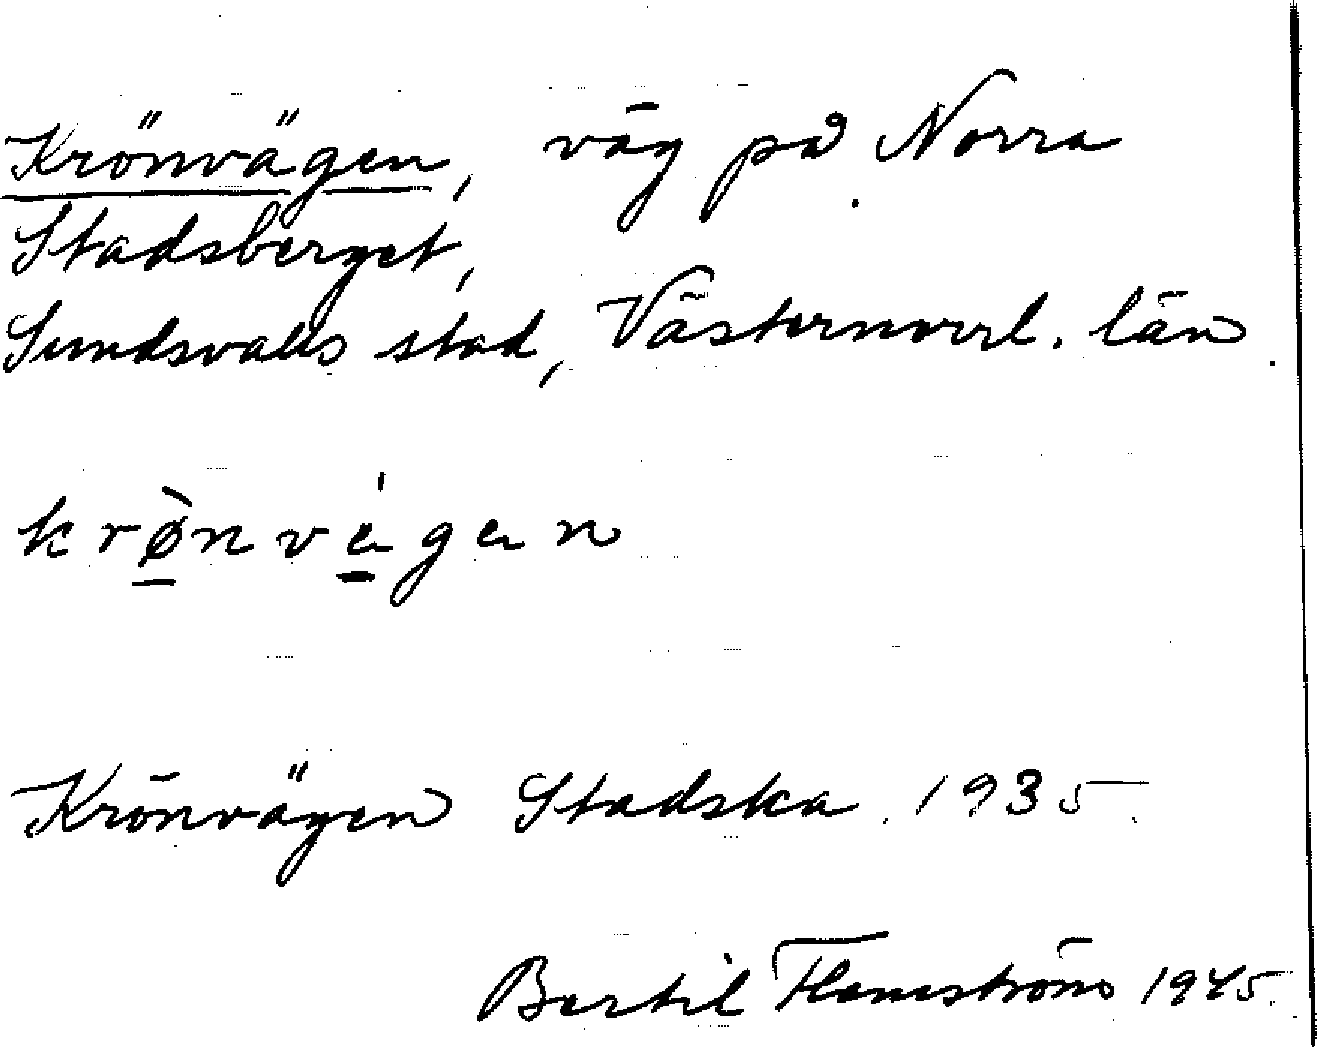 Krönvägen, väg på Norra
Stadsberget,
Sundsvalls stad, Västernorrl. län
krø̀nvégen
Krönvägen Stadska 1935
Bertil Flemström 1945